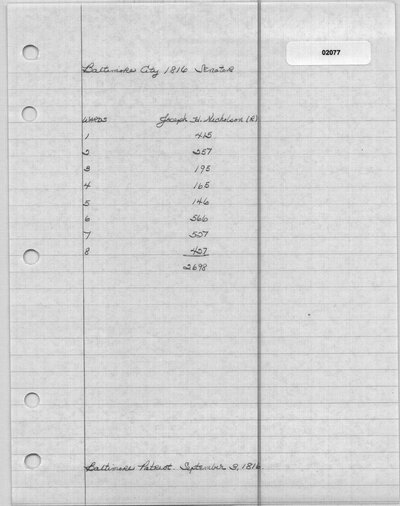 02077
Baltimore City 1816 Senators
WARDS Joseph H. Nicholson (R)
1 415
2 257
3 195
4 165
5 146
6 566
7 527
8 427
2698
Baltimore Patriot September 3, 1816